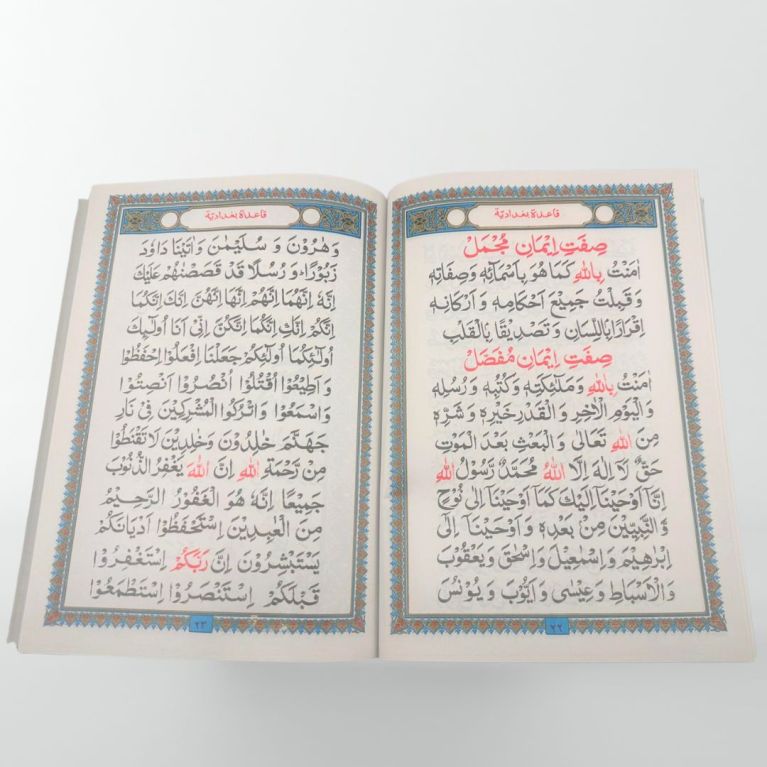 قاعدة بغدادية
صِفَتِ اِيْمَانِ مُجْمَلْ
اٰمَنْتُ بِاللّٰهِ كَمَا هُوَ بِاَسْمَآئِهٖ وَصِفَاتِهٖ
وَقَبِلْتُ جَمِيْعَ اَحْكَامِهٖ وَ اَرْكَانِهٖ
اِقْرَارٌ بِاللِّسَانِ وَ تَصْدِيْقٌ بِالْقَلْبِ
صِفَتِ اِيْمَانِ مُفَصَّلْ
اٰمَنْتُ بِاللّٰهِ وَ مَلٰٓئِكَتِهٖ وَ كُتُبِهٖ وَ رُسُلِهٖ
وَالْيَوْمِ الْاٰخِرِ وَ الْقَدْرِ خَيْرِهٖ وَ شَرِّهٖ
مِنَ اللّٰهِ تَعَالٰى وَ الْبَعْثِ بَعْدَ الْمَوْتِ
حَقٌّ لَآ اِلٰهَ اِلَّا اللّٰهُ مُحَمَّدٌ رَّسُوْلُ اللّٰهِ
اِنَّآ اَوْحَيْنَآ اِلَيْكَ كَمَآ اَوْحَيْنَآ اِلٰى نُوْحٍ
وَّ النَّبِيّٖنَ مِنْۢ بَعْدِهٖ وَ اَوْحَيْنَآ اِلٰٓى
اِبْرٰهِيْمَ وَ اِسْمٰعِيْلَ وَ اِسْحٰقَ وَ يَعْقُوْبَ
وَالْاَسْبَاطِ وَ عِيْسٰى وَ اَيُّوْبَ وَ يُوْنُسَ
٢٢
قاعدة بغدادية
وَ هٰرُوْنَ وَ سُلَيْمٰنَ وَ اٰتَيْنَا دَاوٗدَ
زَبُوْرًا وَ رُسُلًا قَدْ قَصَصْنٰهُمْ عَلَيْكَ
اِنَّهٗ اِنَّهُمَا اِنَّهُمْ اِنَّهَا اِنَّهُنَّ اِنَّكَ اِنَّكُمَا
اِنَّكُمْ اِنَّكِ اِنَّكُمَا اِنَّكُنَّ اِنِّىْ اَنَا اُولٰٓئِكَ
اُولٰٓئِكُمَا اُولٰٓئِكُمْ جَعَلْنَا اِفْعَلُوْا اِحْفَظُوْا
وَ اَطِيْعُوْا اُقْتُلُوْا اُنْصُرُوْا اَنْصِتُوْا
وَ اسْمَعُوْا وَ اتْرُكُوا الْمُشْرِكِيْنَ فِىْ نَارِ
جَهَنَّمَ خٰلِدُوْنَ وَ خٰلِدِيْنَ لَا تَقْنَطُوْا
مِنْ رَّحْمَةِ اللّٰهِ اِنَّ اللّٰهَ يَغْفِرُ الذُّنُوْبَ
جَمِيْعًا اِنَّهٗ هُوَ الْغَفُوْرُ الرَّحِيْمُ
مِنَ الْعٰبِدِيْنَ اِسْتَحْفَظُوْا اَدْيَانَكُمْ
يَسْتَبْشِرُوْنَ اِنَّ رَبَّكُمْ اِسْتَغْفِرُوْا
قَبْلَكُمْ اِسْتَنْصِرُوْا اِسْتَطْمَعُوْا
٢٣